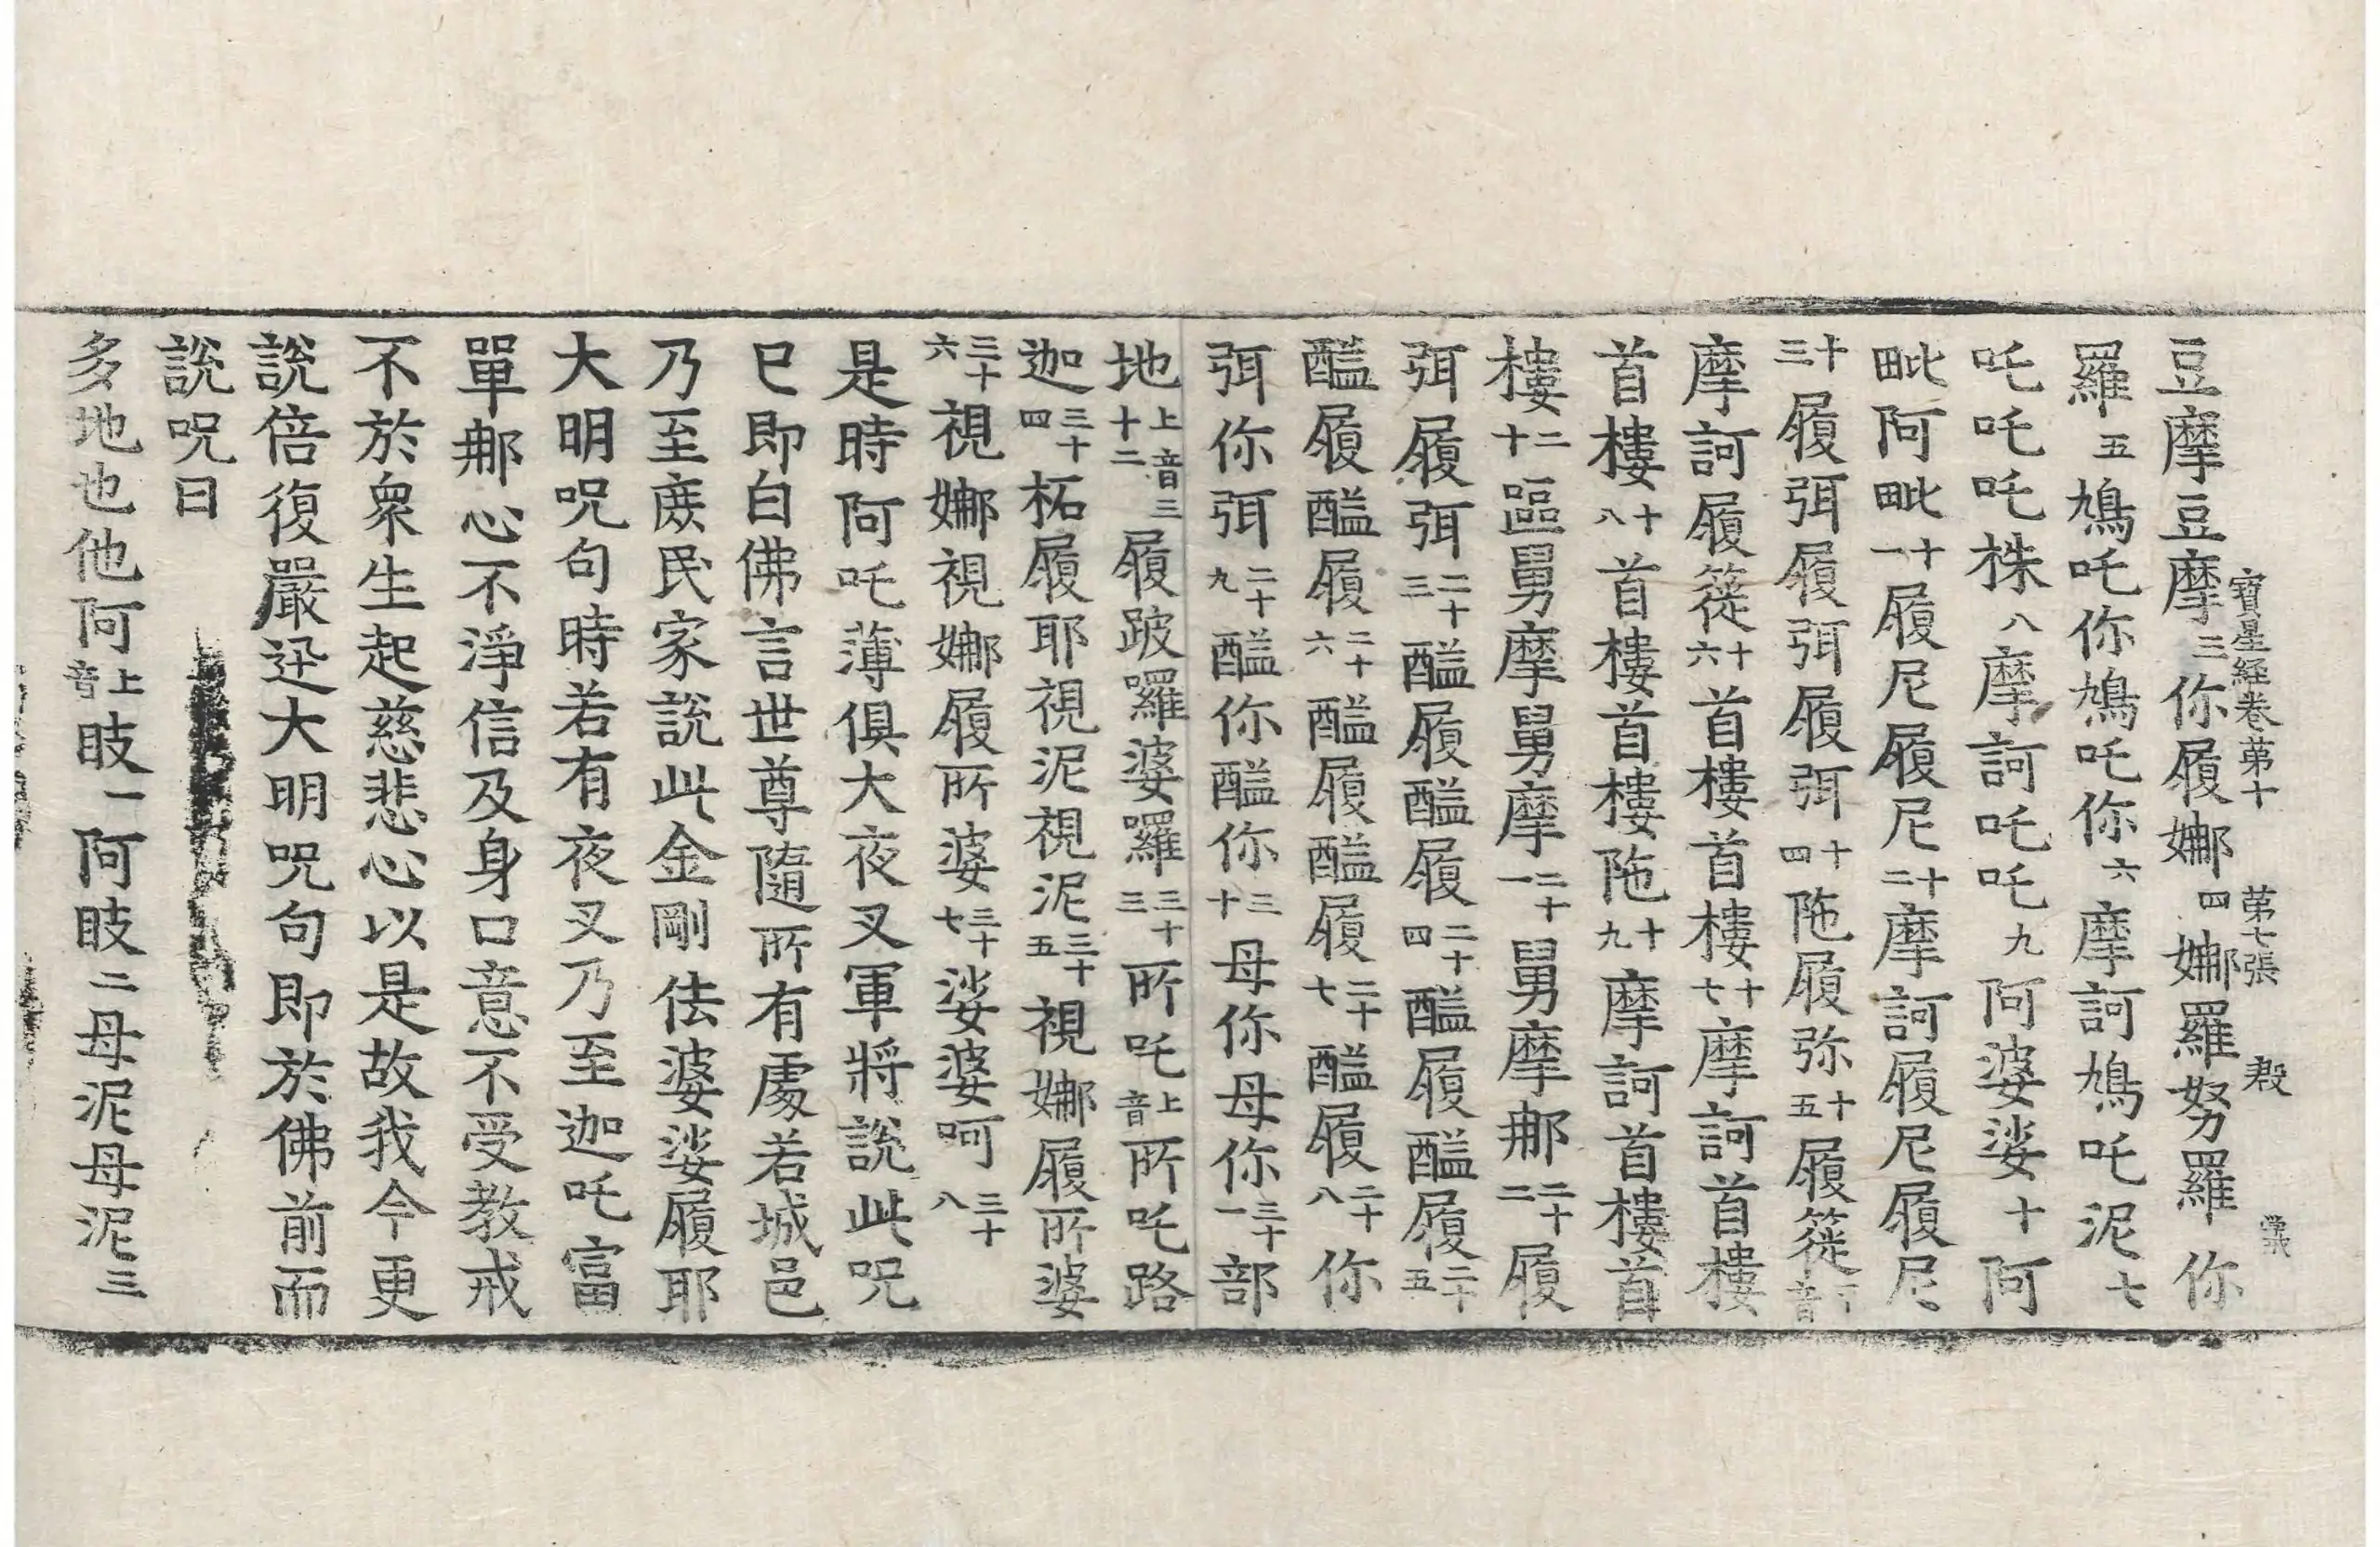 豆摩豆摩三你履娜四娜羅努羅你
寶星経卷苐十 苐七張 殷
羅五鳩吒你鳩吒你六摩訶鳩吒泥七
吒吒吒株八摩訶吒吒九阿婆娑十阿
毗阿毗十一履尼履尼十二摩訶履尼履尼
十三履弭履弭履弭十四陁履弥十五履簁下音
摩訶履簁十六首樓首樓十七摩訶首樓
首樓十八首樓首樓陁十九摩訶首樓首
樓二十區舅摩舅摩二十一舅摩那二十二履
弭履弭二十三醯履醯履二十四醯履醯履二十五
醯履醯履二十六醯履醯履二十七醯履二十八你
弭你弭二十九醯你醯你三十母你母你三十一部
地上音三十二履跛囉婆囉三十三所吒上音所吒路
迦三十四柘履耶視泥視泥三十五視娜履所婆
三十六視娜視娜履所婆三十七娑婆呵三十八
是時阿吒薄俱大夜叉軍將說此呪
已即白佛言世尊隨所有處若城邑
乃至庶民家說此金剛佉婆娑履耶
大明呪句時若有夜叉乃至迦吒富
單那心不淨信及身口意不受教戒
不於衆生起慈悲心以是故我今更
說倍復嚴迅大明呪句即於佛前而
說呪曰
多地也他阿上音跂一阿跂二母泥母泥三